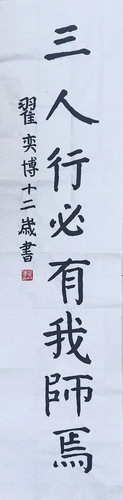 三人行必有我師焉
翟奕博十二歲書